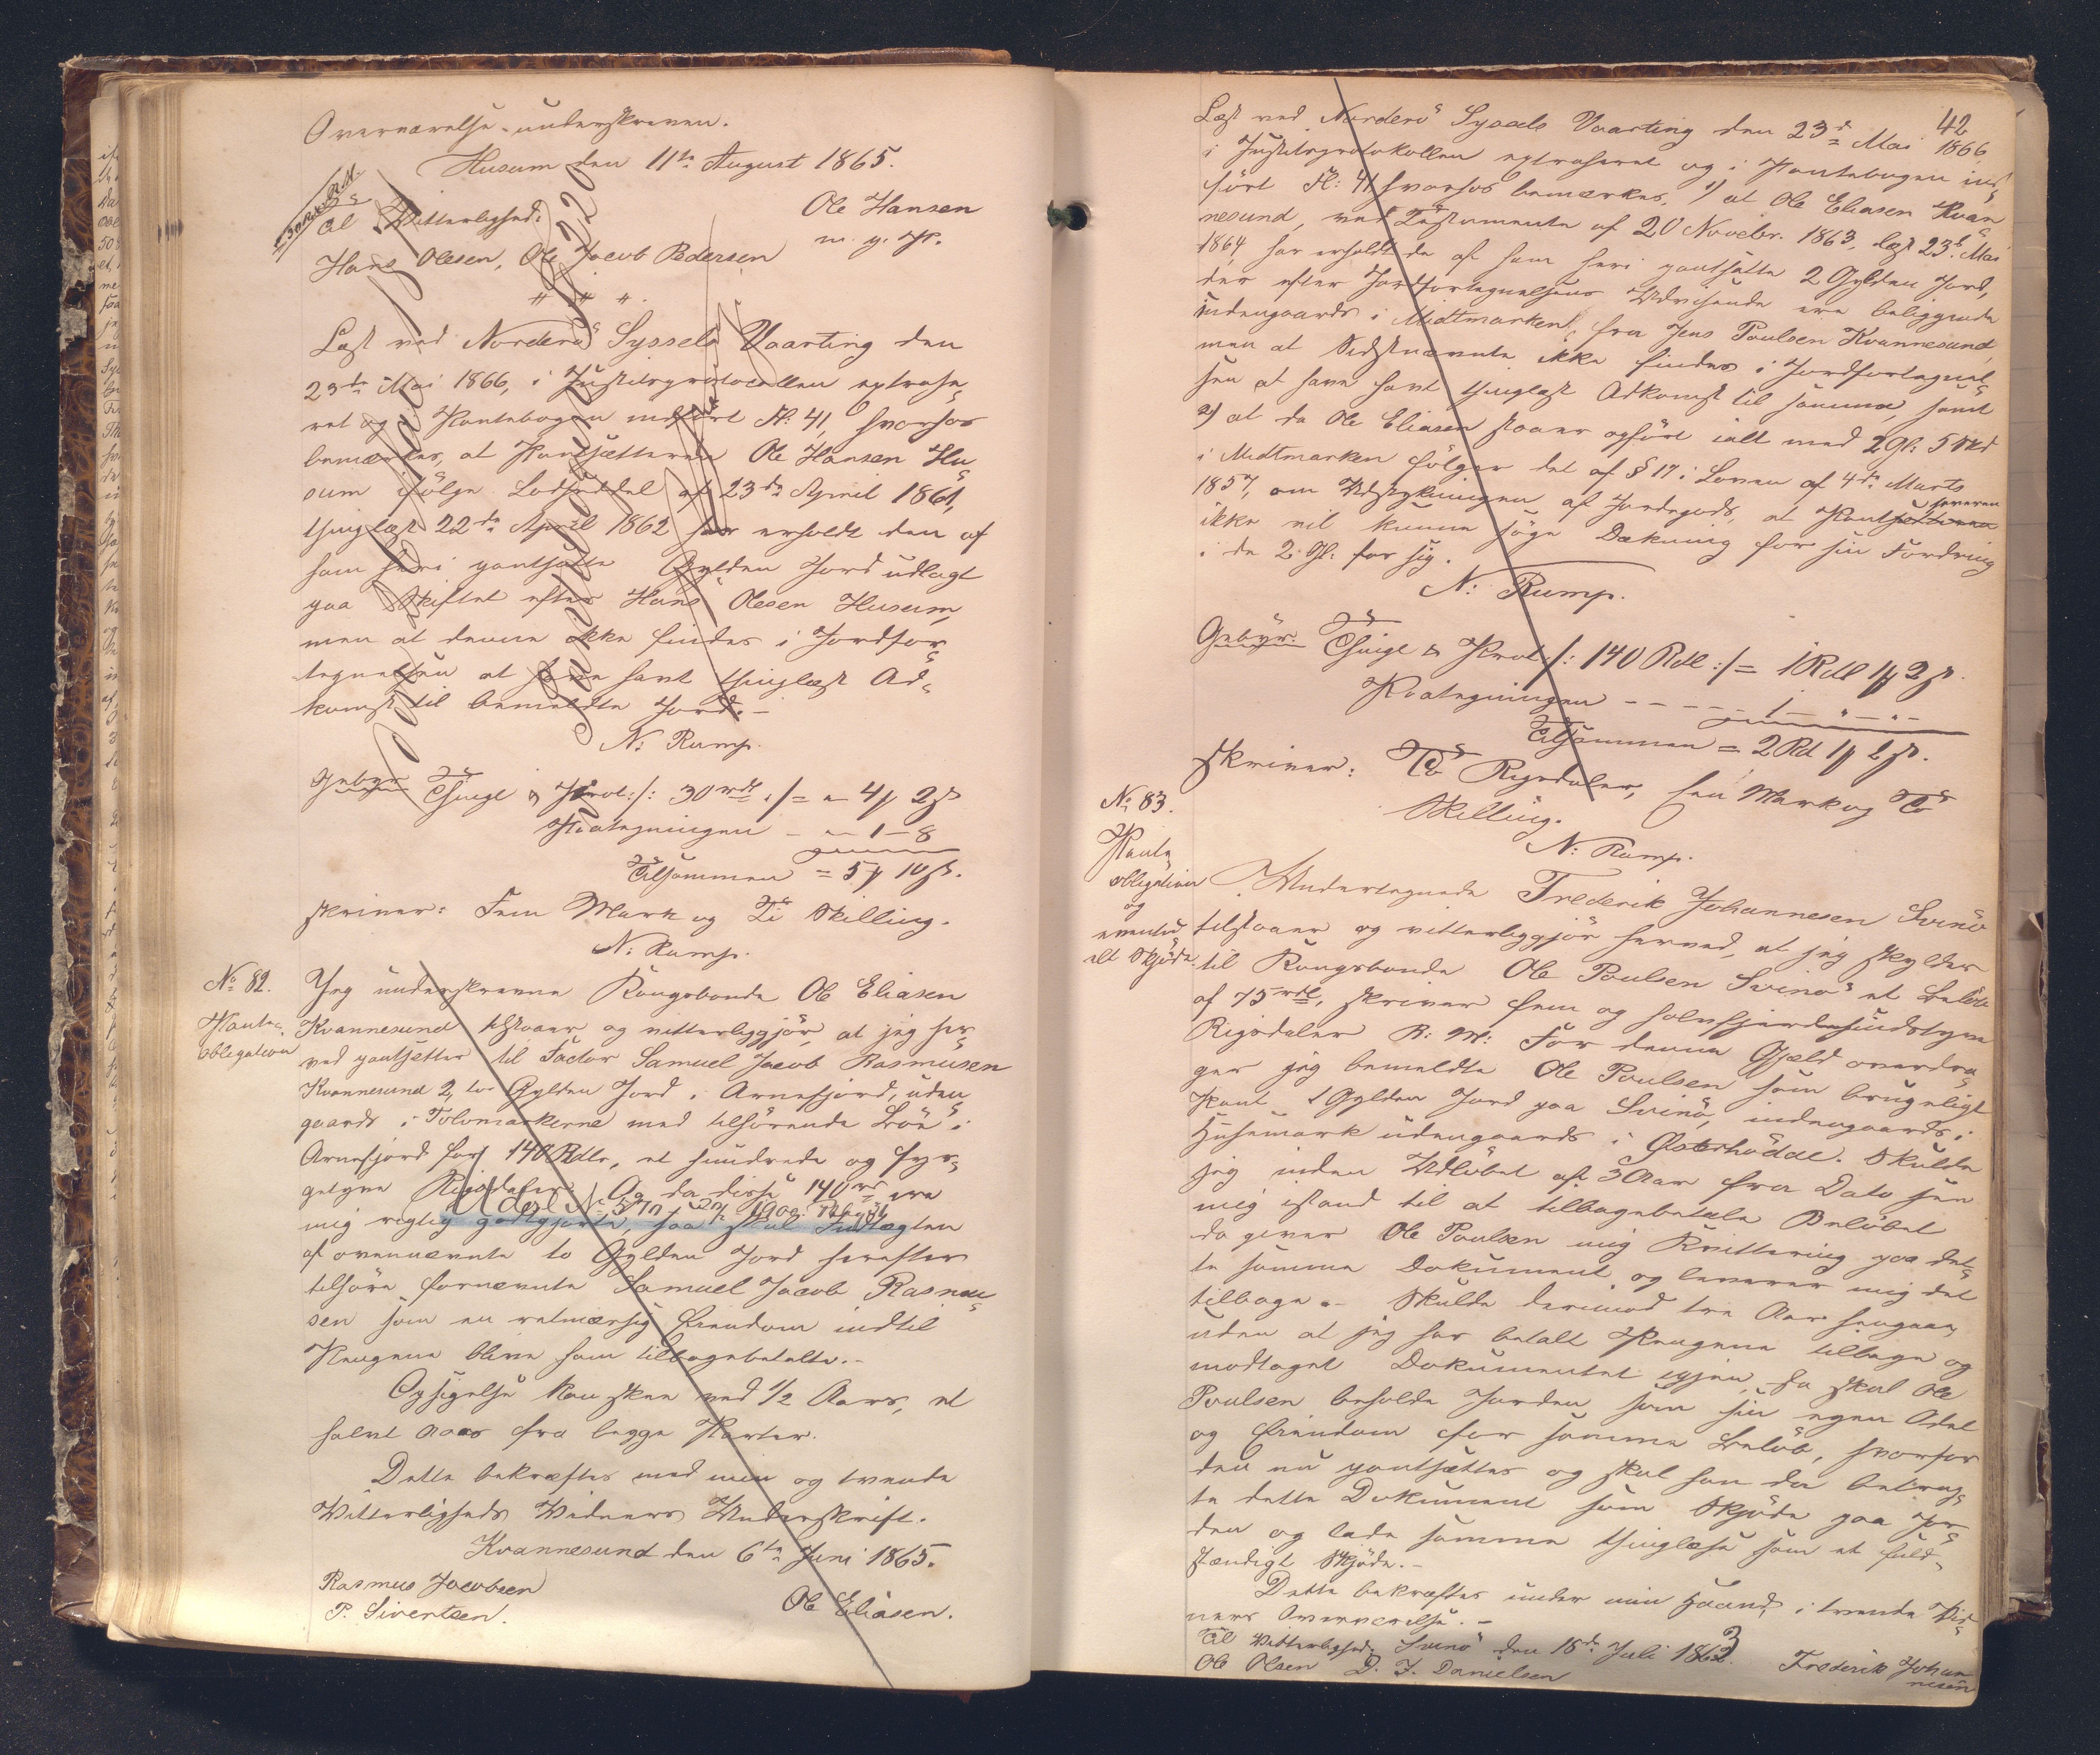 Overværelse underskreven.
Husum den 11te August 1865.
Til Vitterlighed:
Ole Hansen
m. g. P.
Hans Olesen, Ole Jacob Pedersen
" " "
Læst ved Norderö Syssels Vaarting den
23de Mai 1866, i Justitsprotocollen extrahe-
ret og i Pantebogen indfört Fl: 41, hvorhos
bemærkes, at Pantsætteren Ole Hansen Hu-
sum ifölge Lodseddel af 23de April 1861,
thinglæst 22de April 1862 har erholdt den af
ham heri pantsatte Gylden Jord udlagt
paa Skiftet efter Hans Olesen Husum,
men at denne ikke findes i Jordfor-
tegnelsen at have havt thinglæst Ad-
komst til bemeldte Jord.-
N: Rump.
Gebyr Thingl & Prot:/: 30 rdl :/= " 4 ₰ 2 ß
Paategningen - " 1 - 8
Tilsammen = 5 ₰ 10 ß.
skriver: Fem Mark og Ti Skilling.
N: Rump.
No 82.
Pante-
obligation
Jeg underskrevne Kongsbonde Ole Eliasen
Kvannesund tilstaaer og vitterliggjör, at jeg her-
ved pantsetter til Factor Samuel Jacob Rasmusen
Kvannesund 2, to Gylden Jord i Arnefjord, uden-
gaards i Tolvmarkerne med tilhörende Löe i
Arnefjord for 140 Rdlr, et hundrede og fyr-
getyve Rigsdaler. Og da disse 140 rd ere
Udsl No 570 1900
mig rigtig godtgjorte, saa skal Indtægten
af ovennævnte to Gylden Jord herefter
tilhöre fornævnte Samuel Jacob Rasmu-
sen som en retmæssig Eiendom indtil
Pengene blive ham tilbagebetalte.-
Opsigelse kan skee ved 1/2 Aars, et
halvt Aars fra begge Parter.
Dette bekræftes med min og tvende
Vitterligheds Vidners Underskrift.
Kvannesund den 6te Juni 1865.
Rasmus Jacobsen
P. Sivertsen.
Ole Eliasen.
42
Læst ved Norderö Syssels Vaarting den 23de Mai 1866,
i Justitsprotokollen extraheret og i Pantebogen ind-
fört Fl: 41, hvorhos bemærkes, 1) at Ole Eliasen Kvan-
nesund, ved Testamente af 20 Novebr. 1863, læst 23d Mai
1864, har erholdt de af ham heri pantsatte 2 Gylden Jord,
der efter Jordfortegnelsens Udvisende ere beliggende
indengaards i Midtmarken, fra Jens Poulsen Kvannesund,
men at Sidstnævnte ikke findes i Jordfortegnel-
sen at have havt thinglæst Adkomst til samme, samt
2) at da Ole Eliasen staaer opfört ialt med 2 Gl: 5 Skd
i Midtmarken fölger det af § 17 i Loven af 4de Marts
1857, om Udstykningen af Jordegods, at Pantsetteren
haveren
ikke vil kunne söge Dækning for sin Fordring
i de 2 Gl: for sig.
N: Rump.
Gebyr. Thingl & Prot:/: 140 Rdl :/= 1 Rdl 1 ₰ 2 ß.
Paategningen - - - - 1 - " - "
Tilsammen = 2 Rd 1 ₰ 2 ß.
skriver: To Rigsdaler, een Mark og To
Skilling.
N: Rump.
No 83.
Pante-
obligation
og
eventu-
elt Skjöde.
Undertegnede Frederik Johannesen Svinö
tilstaaer og vitterliggjör herved, at jeg skylder
til Kongsbonde Ole Poulsen Svinö et Belöb
af 75 rdl, skriver fem og halvfjerdesindstyve
Rigsdaler R: M: For denne Gjæld overdra-
ger jeg bemeldte Ole Poulsen som brugeligt
Pant 1 Gylden Jord paa Svinö, indengaards i
Husemark udengaards i Østerhödde. Skulde
jeg inden Udlöbet af 3 Aar fra Dato see
mig istand til at tilbagebetale Belöbet
da giver Ole Poulsen mig Kvittering paa det-
te samme Dokument og leverer mig det
tilbage.- Skulde derimod tre Aar hengaae,
uden at jeg har betalt Pengene tilbage og
modtaget Dokumentet igjen, da skal Ole
Poulsen beholde Jorden som sin egen Odel
og Eiendom for samme Belöb, hvorfor
den nu pantsættes og skal han da betrag-
te dette Dokument som Skjöde paa Jor-
den og lade samme thinglæse som et fuld-
stændigt Skjöde.-
Dette bekræftes under min Haand, i tvende Vid-
ners Overværelse.-
Til Vitterlighed Svinö den 15de Juli 1863.
Ole Olsen D. J. Danielsen
Frederik Johan-
nesen